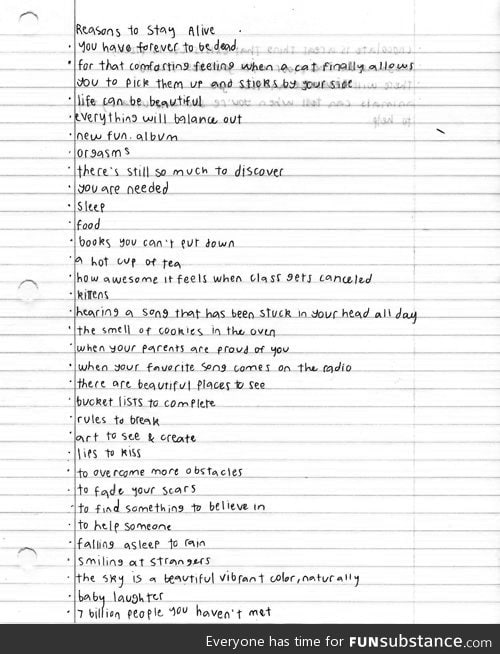 Reasons to Stay Alive
• you have forever to be dead
• for that comforting feeling when a cat finally allows
you to pick them up and sticks by your side
• life can be beautiful
• everything will balance out
• new fun. album
• orgasms
• there's still so much to discover
• you are needed
• sleep
• food
• books you can't put down
• a hot cup of tea
• how awesome it feels when class gets canceled
• kittens
• hearing a song that has been stuck in your head all day
• the smell of cookies in the oven
• when your parents are proud of you
• when your favorite song comes on the radio
• there are beautiful places to see
• bucket lists to complete
• rules to break
• art to see & create
• lips to kiss
• to overcome more obstacles
• to fade your scars
• to find something to believe in
• to help someone
• falling asleep to rain
• smiling at strangers
• the sky is a beautiful vibrant color, naturally
• baby laughter
• 7 billion people you haven't met
Everyone has time for FUNsubstance.com